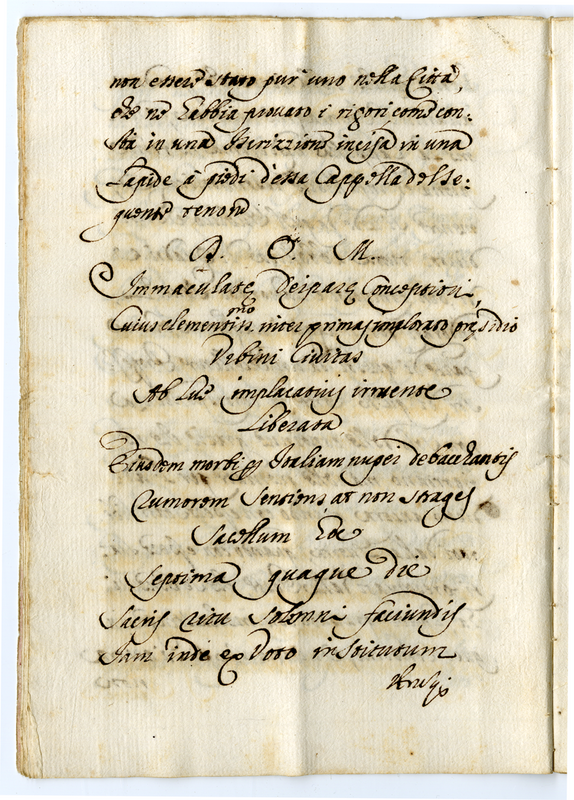 non essere stato pur uno nella Città,
che ne habbia provato i rigori come con:
sta in una Iscrizzione incisa in una
Lapide a piedi d'essa Cappella del se:
guente tenore
D. O. M.
Immaculatę Deiparę Conceptioni,
Cuius clementiss.mo inter primas implorato pręsidio
Urbini Civitas
Ab Lue implacatius irruente
Liberata
Eiusdem morbi per Italiam nuper debacchantis
Rumorem Sentiens, at non strages
Sacellum hoc
Septima quaque die
Sacris ritu solemni faciundis
Iam inde ex Voto institutum